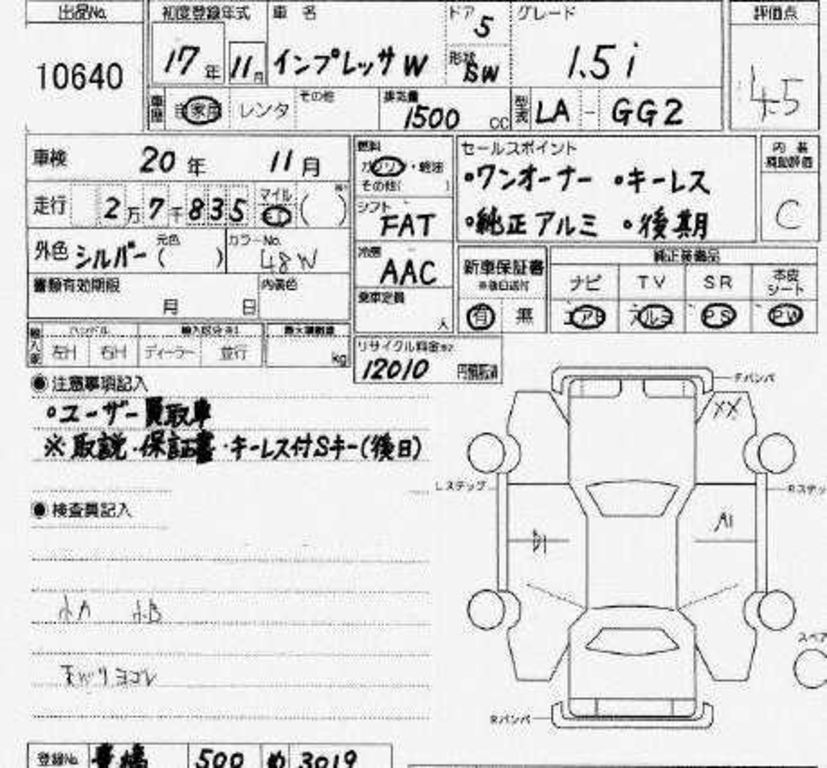 出品No. 初度登録年式 車名 ドア 5 グレード 評価点
10640 17年 11月 インプレッサW 形状 SW 1.5i 4.5
車歴 自家用 レンタ その他 排気量 1500 CC 型式 LA - GG2
車検 20年 11月 燃料 ガソリン・軽油 その他( ) セールスポイント 内装補助評価
・ワンオーナー ・キーレス
走行 2万7千835 マイル Km ( ) シフト FAT ・純正アルミ ・後期 C
外色 シルバー 元色( ) カラーNo. 48W 冷房 AAC 新車保証書 ※後日送付 純正装備品
ナビ TV SR 本皮シート
書類有効期限 月 日 内装色 乗車定員 人 有 無 エアB アルミ PS PW
輸入車 ハンドル 輸入区分 最大積載量
左H 右H ディーラー 並行 kg リサイクル料金 12010 円預託済
●注意事項記入
・ユーザー買取車
※取説・保証書・キーレス付Sキー(後日)
●検査員記入
小A 小B
Fバンパ
XX
Lステップ Rステップ
A1
B1
スペア
Rバンパ
登録No. 豊橋 500 め 3019